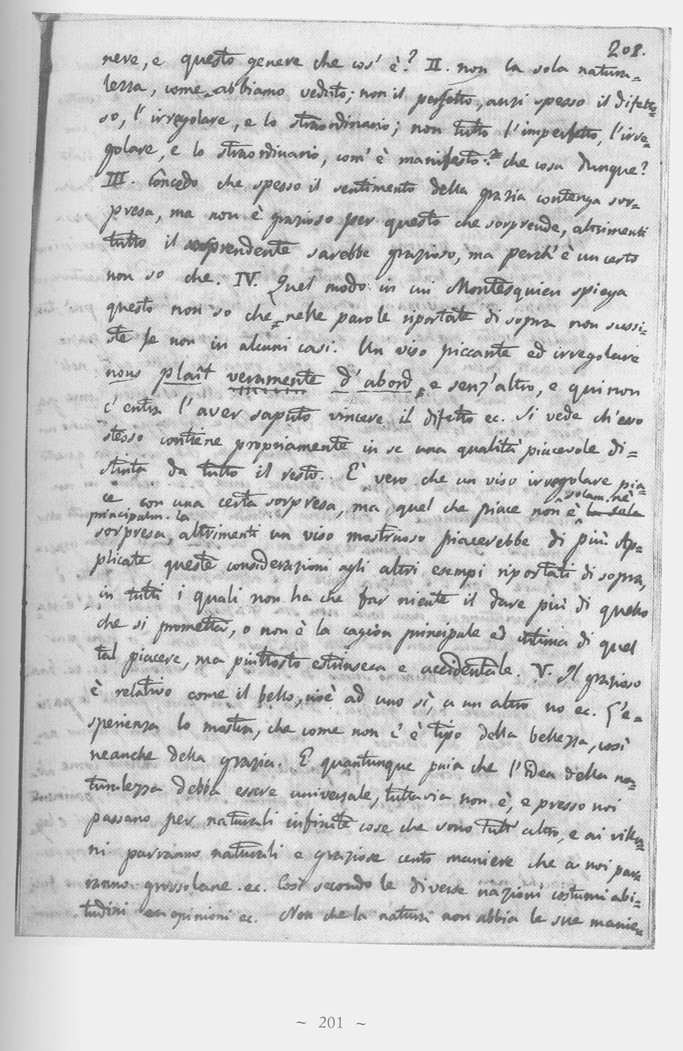 201.
nere, e questo genere che cos' è? II. non la sola natura-
lezza, come abbiamo veduto; non il perfetto, anzi spesso il difetto-
so, l'irregolare, e lo straordinario; non tutto l'imperfetto, l'irre-
golare, e lo straordinario, com' è manifesto: che cosa dunque?
III. Concedo che spesso il sentimento della grazia contenga sor-
presa, ma non è grazioso per questo che sorprende, altrimenti
tutto il sorprendente sarebbe grazioso, ma perch' è un certo
non so che. IV. Quel modo in cui Montesquieu spiega
questo non so che, nelle parole riportate di sopra non sussi-
ste se non in alcuni casi. Un viso piccante ed irregolare
nous plaît veramente d'abord, e senz'altro, e qui non
c'entra l'aver saputo vincere il difetto ec. Si vede ch'esso
stesso contiene propriamente in se una qualità piacevole di-
stinta da tutto il resto. È vero che un viso irregolare pia-
ce con una certa sorpresa, ma quel che piace non è solam. nè la sola
principalm. la
sorpresa, altrimenti un viso mostruoso piacerebbe di più. Ap-
plicate queste considerazioni agli altri esempi riportati di sopra,
in tutti i quali non ha che far niente il dare più di quello
che si prometta, o non è la cagion principale ed intima di quel
tal piacere, ma piuttosto estrinseca e accidentale. V. Il grazioso
è relativo come il bello, cioè ad uno sì, a un altro no ec. L'e-
sperienza lo mostra, che come non c' è tipo della bellezza, così
neanche della grazia. E quantunque paia che l'idea della na-
turalezza debba essere universale, tuttavia non è, e presso noi
passano per naturali infinite cose che sono tutt' altro, e ai villa-
ni parranno naturali e graziose cento maniere che a noi par-
ranno grossolane. ec. Così secondo le diverse nazioni costumi abi-
tudini opinioni ec. Non che la natura non abbia le sue manie-
~ 201 ~